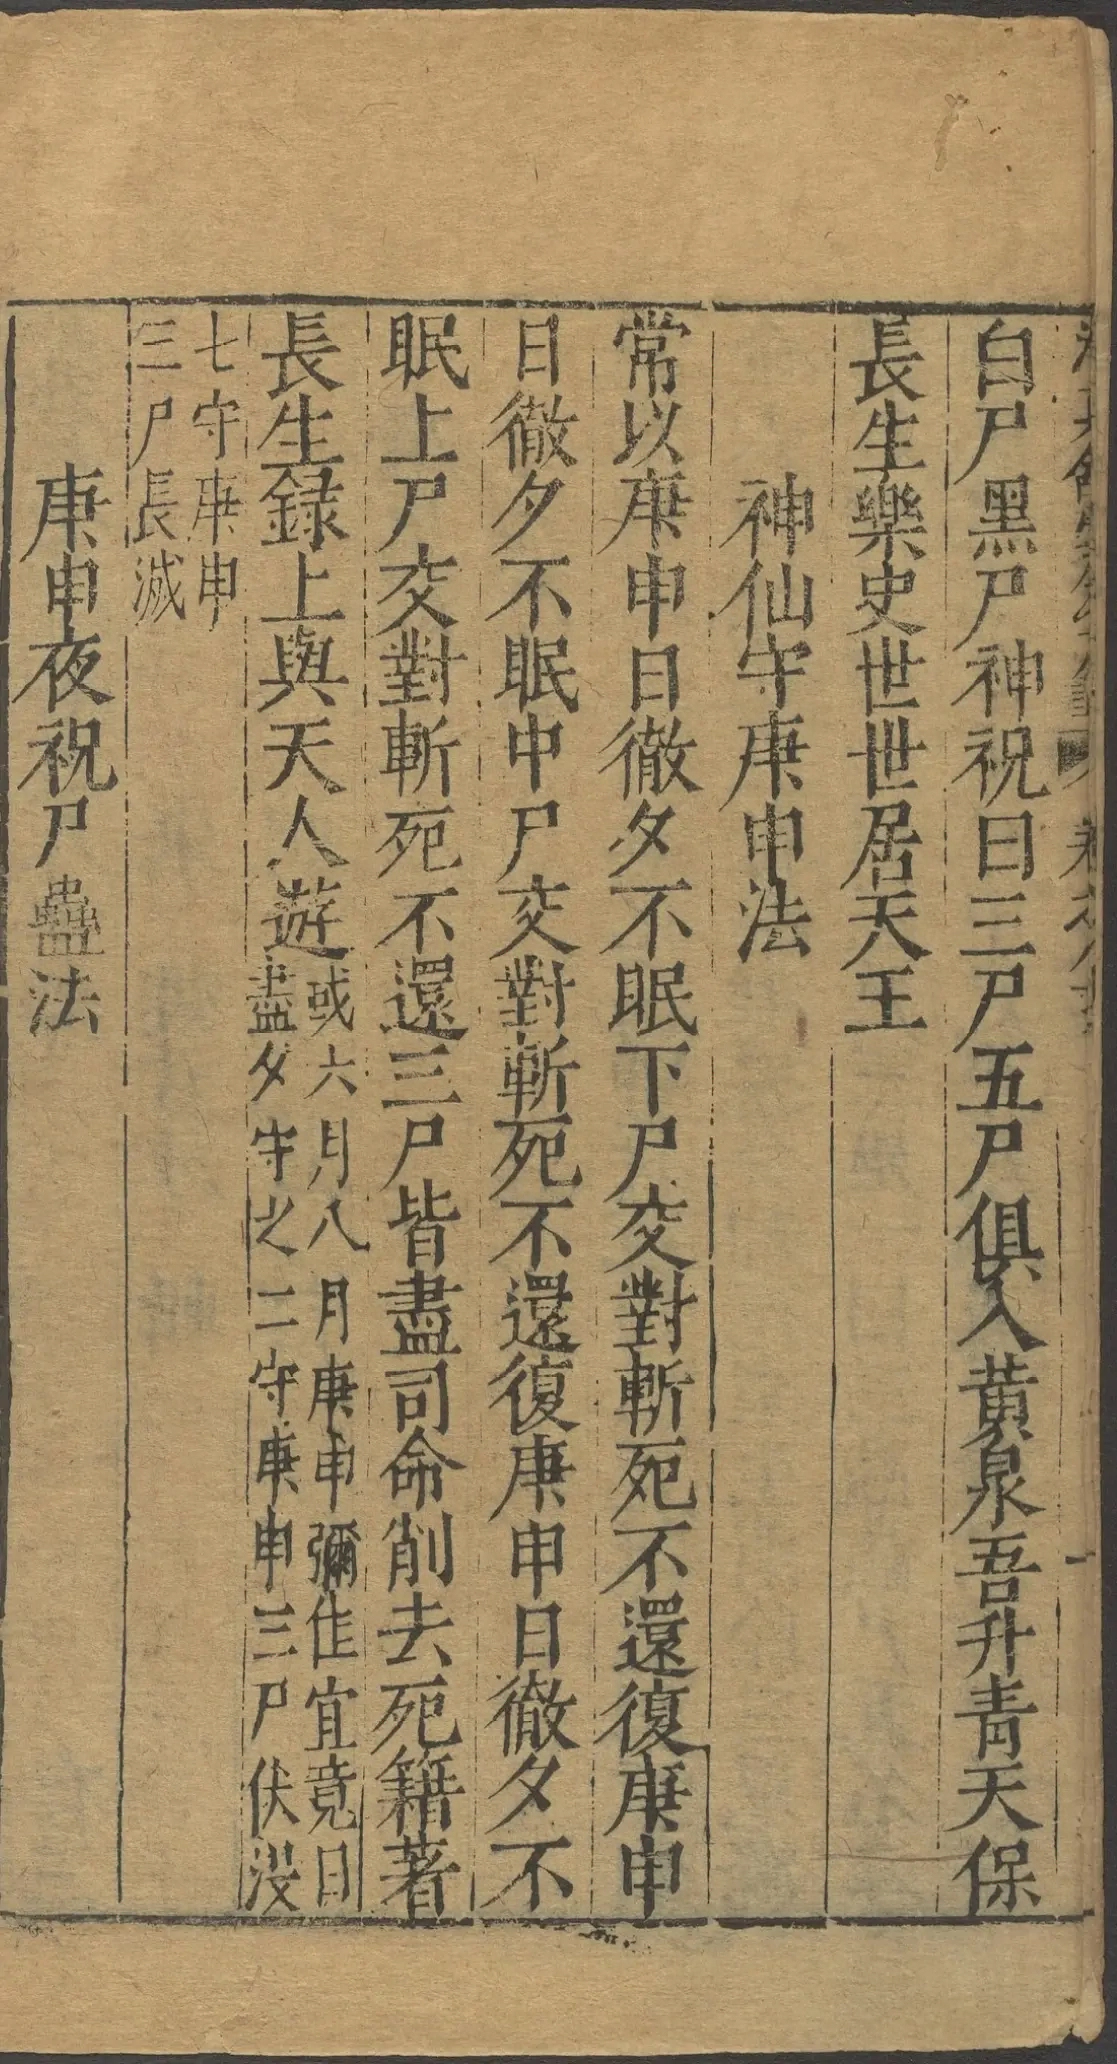 白尸黑尸神祝曰三尸五尸俱入黄泉吾升青天保
長生樂史世世居天王
神仙守庚申法
常以庚申日徹夕不眠下尸交對斬死不還復庚申
日徹夕不眠中尸交對斬死不還復庚申日徹夕不
眠上尸交對斬死不還三尸皆盡司命削去死籍著
長生録上與天人遊或六月八月庚申彌佳宜竟日
盡夕守之二守庚申三尸伏没
七守庚申
三尸長滅
庚申夜祝尸蠱法